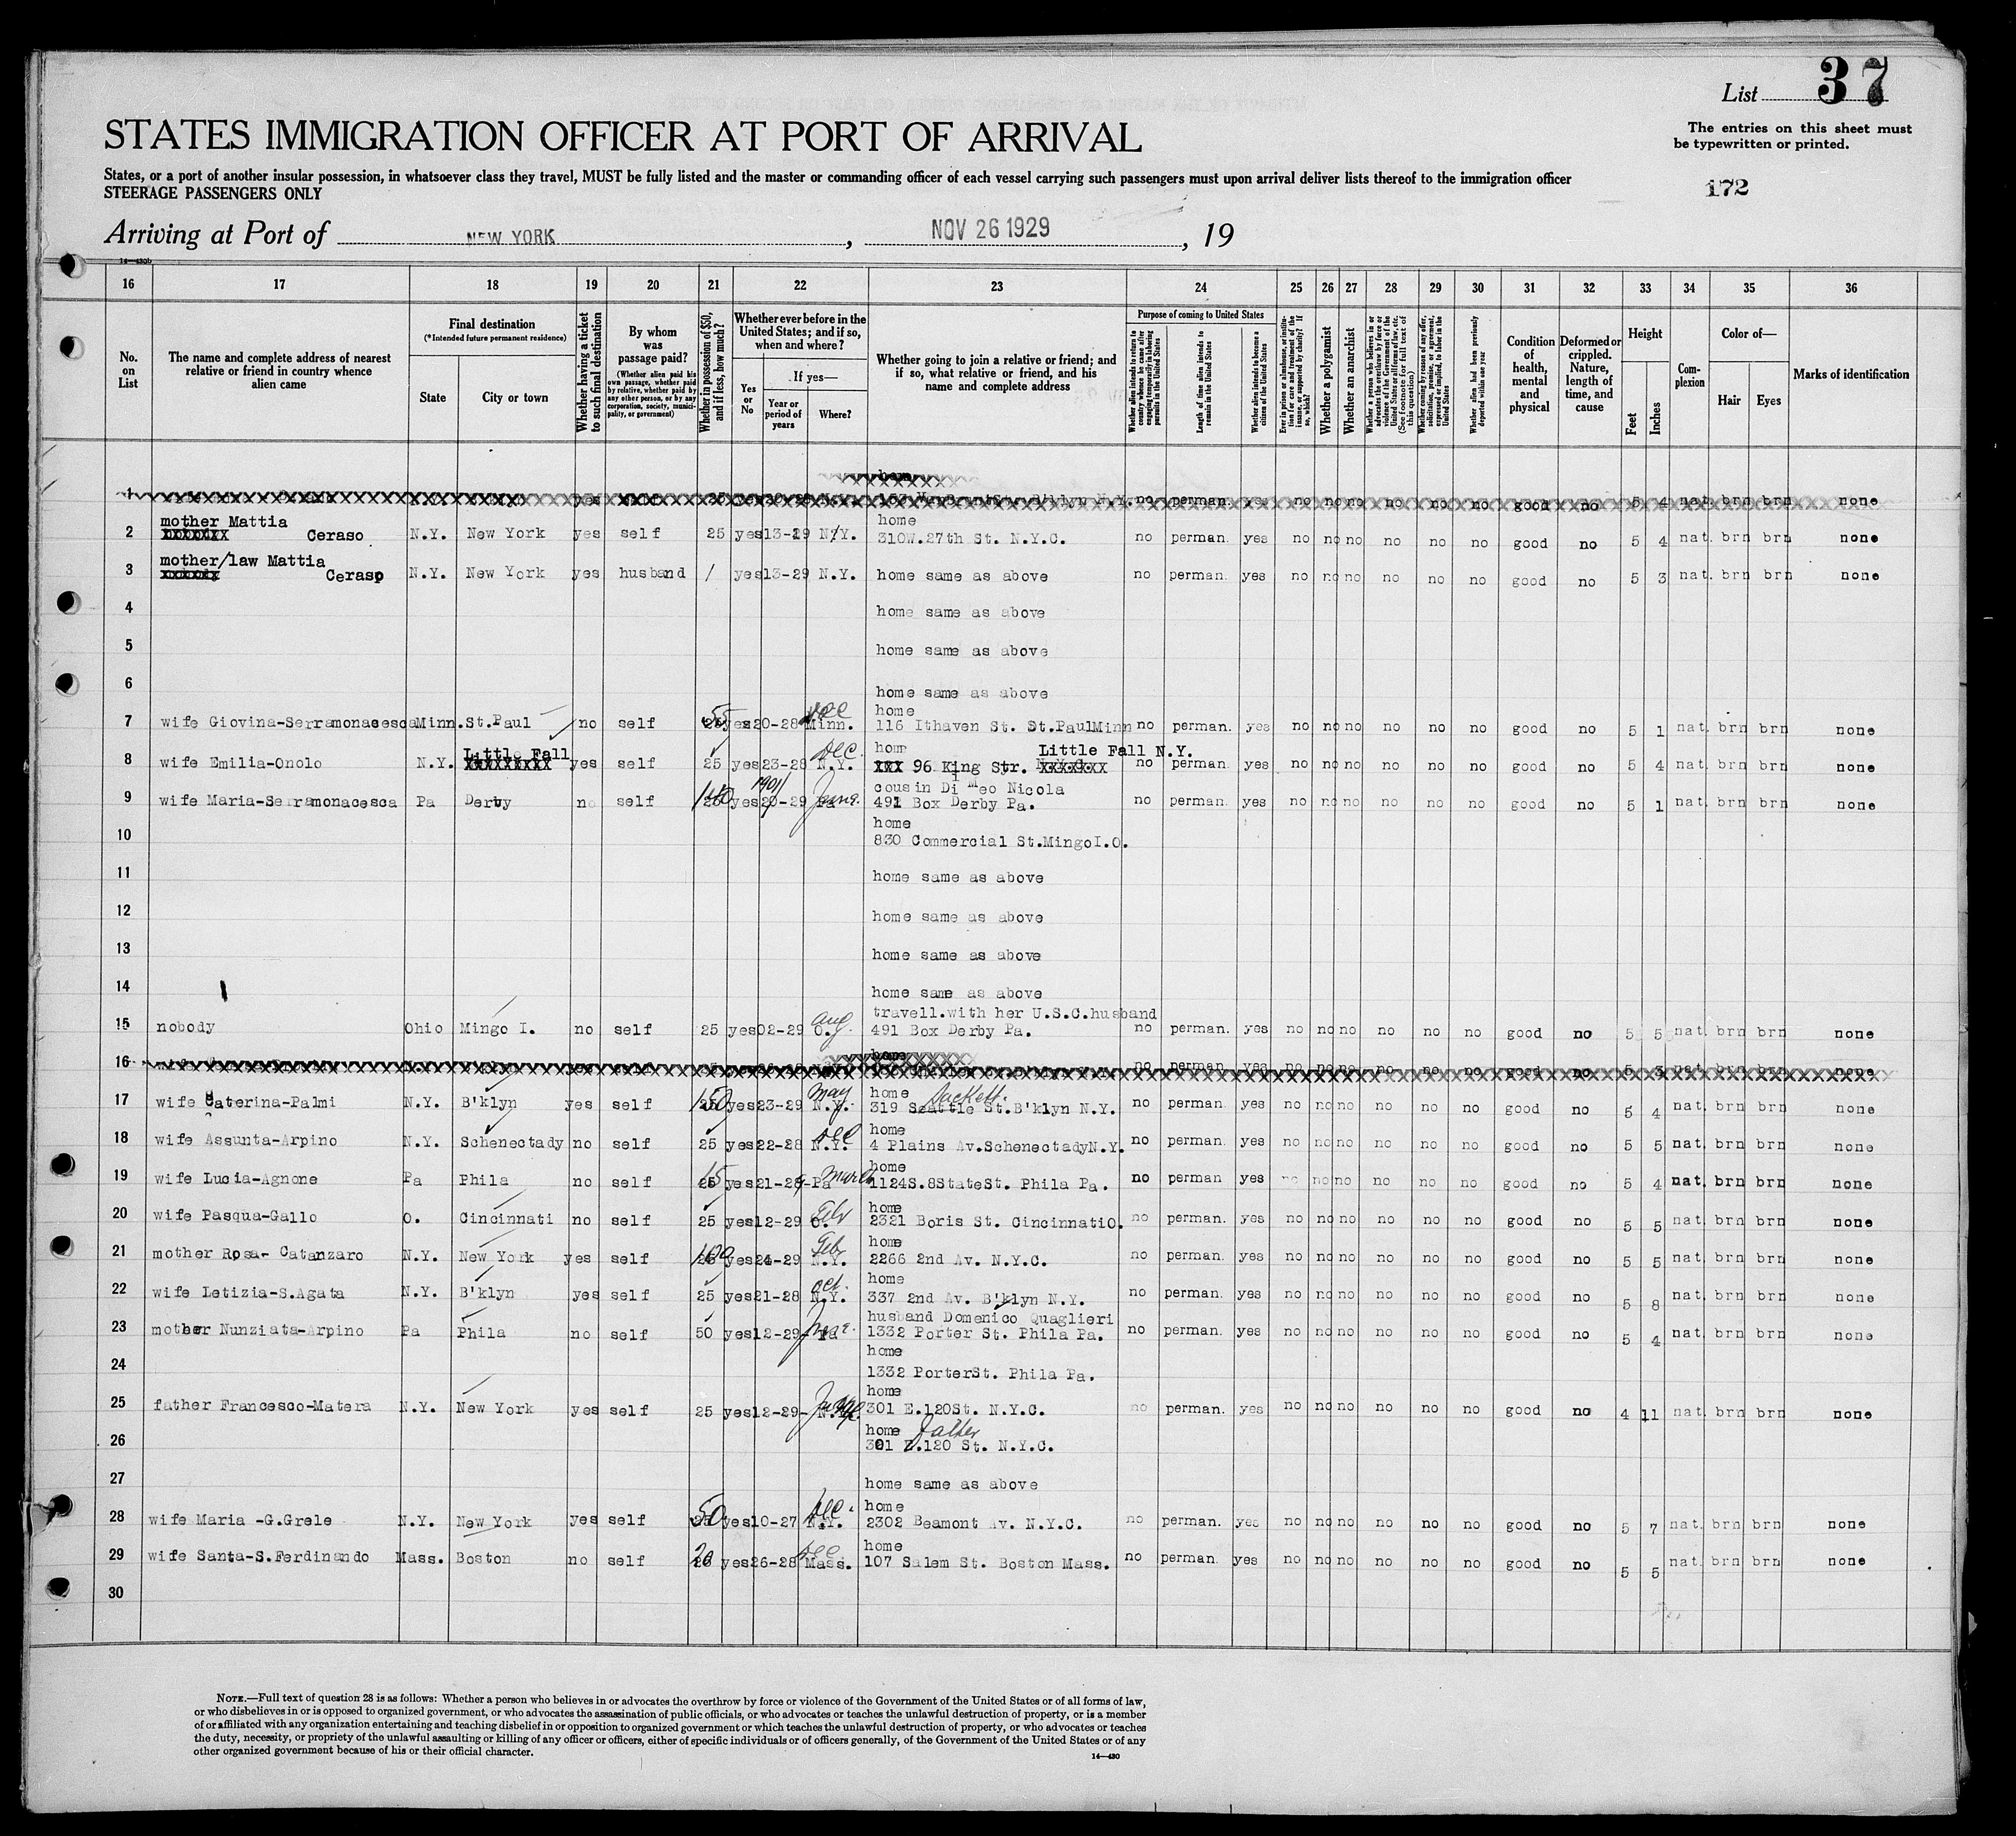 List 37
The entries on this sheet must
be typewritten or printed.
STATES IMMIGRATION OFFICER AT PORT OF ARRIVAL
States, or a port of another insular possession, in whatsoever class they travel, MUST be fully listed and the master or commanding officer of each vessel carrying such passengers must upon arrival deliver lists thereof to the immigration officer
STEERAGE PASSENGERS ONLY
172
Arriving at Port of NEW YORK, NOV 26 1929, 19
14—430b
16 17 18 19 20 21 22 23 24 25 26 27 28 29 30 31 32 33 34 35 36
No. on List
The name and complete address of nearest relative or friend in country whence alien came
Final destination
(*Intended future permanent residence)
State
City or town
Whether having a ticket to such final destination
By whom was passage paid?
(Whether alien paid his own passage, whether paid by relative, whether paid by any other person, or by any corporation, society, municipality, or government)
Whether in possession of $50, and if less, how much?
Whether ever before in the United States; and if so, when and where?
Yes or No
If yes—
Year or period of years
Where?
Whether going to join a relative or friend; and if so, what relative or friend, and his name and complete address
Purpose of coming to United States
Whether alien intends to return to country whence he came after engaging temporarily in laboring pursuits in the United States
Length of time alien intends to remain in the United States
Whether alien intends to become a citizen of the United States
Ever in prison or almshouse, or institution for care and treatment of the insane, or supported by charity? If so, which?
Whether a polygamist
Whether an anarchist
Whether a person who believes in or advocates the overthrow by force or violence of the Government of the United States or all forms of law, etc. (See footnote for full text of this question)
Whether coming by reason of any offer, solicitation, promise, or agreement, expressed or implied, to labor in the United States
Whether alien had been previously deported within one year
Condition of health, mental and physical
Deformed or crippled. Nature, length of time, and cause
Height
Feet
Inches
Complexion
Color of—
Hair
Eyes
Marks of identification
home
1 yes 25 yes B'klyn N.Y. no perman. yes no no no no no no good no 5 4 nat. brn brn none
mother Mattia home
2 Ceraso N.Y. New York yes self 25 yes 13-29 N.Y. 310W.27th St. N.Y.C. no perman. yes no no no no no no good no 5 4 nat. brn brn none
mother/law Mattia
3 Ceraso N.Y. New York yes husband / yes 13-29 N.Y. home same as above no perman. yes no no no no no no good no 5 3 nat. brn brn none
4 home same as above
5 home same as above
6 home same as above
Dec home
7 wife Giovina-Serramonacesca Minn. St.Paul no self 25 yes 20-28 Minn. 116 Ithaven St. St.PaulMinn no perman. yes no no no no no no good no 5 1 nat. brn brn none
Little Fall Dec. hom Little Fall N.Y.
8 wife Emilia-Onolo N.Y. yes self 25 yes 23-28 N.Y. 96 King Str. no perman. yes no no no no no no good no 5 4 nat. brn brn none
1901 cousin Di Meo Nicola
9 wife Maria-Serramonacesca Pa Derby no self 140 yes 20-29 Pa June. 491 Box Derby Pa. no perman. yes no no no no no no good no 5 1 nat. brn brn none
home
10 830 Commercial St.MingoI.O.
11 home same as above
12 home same as above
13 home same as above
14 home same as above
Aug. travell.with her U.S.C.husband
15 nobody Ohio Mingo I. no self 25 yes 02-29 O. 491 Box Derby Pa. no perman. yes no no no no no no good no 5 5 nat. brn brn none
home
16 no perman. yes no no no no no no good no 5 3 nat. brn brn none
May home Sackett.
17 wife Caterina-Palmi N.Y. B'klyn yes self 150 yes 23-29 N.Y. 319 Seattle St.B'klyn N.Y. no perman. yes no no no no no no good no 5 4 nat. brn brn none
Dec home
18 wife Assunta-Arpino N.Y. Schenectady no self 25 yes 22-28 N.Y. 4 Plains Av.SchenectadyN.Y. no perman. yes no no no no no no good no 5 5 nat. brn brn none
March home
19 wife Lucia-Agnone Pa Phila no self 15 yes 21-29 Pa 1124S.8StateSt. Phila Pa. no perman yes no no no no no no good no 5 4 nat. brn brn none
Feb home
20 wife Pasqua-Gallo O. Cincinnati no self 25 yes 12-29 O. 2321 Boris St. CincinnatiO. no perman. yes no no no no no no good no 5 5 nat. brn brn none
Feb home
21 mother Rosa- Catanzaro N.Y. New York yes self 100 yes 24-29 N.Y. 2266 2nd Av. N.Y.C. no perman. yes no no no no no no good no 5 5 nat. brn brn none
oct. home
22 wife Letizia-S.Agata N.Y. B'klyn yes self 25 yes 21-28 N.Y. 337 2nd Av. B'klyn N.Y. no perman. yes no no no no no no good no 5 8 nat. brn brn none
husband Domenico Quaglieri
23 mother Nunziata-Arpino Pa Phila no self 50 yes 12-29 Pa 1332 Porter St. Phila Pa. no perman. yes no no no no no no good no 5 4 nat. brn brn none
home
24 1332 PorterSt. Phila Pa.
home
25 father Francesco-Matera N.Y. New York yes self 25 yes 12-29 N.Y. 301 E.120St. N.Y.C. no perman. yes no no no no no no good no 4 11 nat. brn brn none
home father
26 301 E.120 St. N.Y.C.
27 home same as above
Dec. home
28 wife Maria -G.Grele N.Y. New York yes self 50 yes 10-27 N.Y. 2302 Beamont Av. N.Y.C. no perman. yes no no no no no no good no 5 7 nat. brn brn none
Dec home
29 wife Santa-S.Ferdinando Mass. Boston no self 20 yes 26-28 Mass. 107 Salem St. Boston Mass. no perman. yes no no no no no no good no 5 5 nat. brn brn none
30
NOTE.—Full text of question 28 is as follows: Whether a person who believes in or advocates the overthrow by force or violence of the Government of the United States or of all forms of law,
or who disbelieves in or is opposed to organized government, or who advocates the assassination of public officials, or who advocates or teaches the unlawful destruction of property, or is a member
of or affiliated with any organization entertaining and teaching disbelief in or opposition to organized government or which teaches the unlawful destruction of property, or who advocates or teaches
the duty, necessity, or propriety of the unlawful assaulting or killing of any officer or officers, either of specific individuals or of officers generally, of the Government of the United States or of any
other organized government because of his or their official character.
14—430